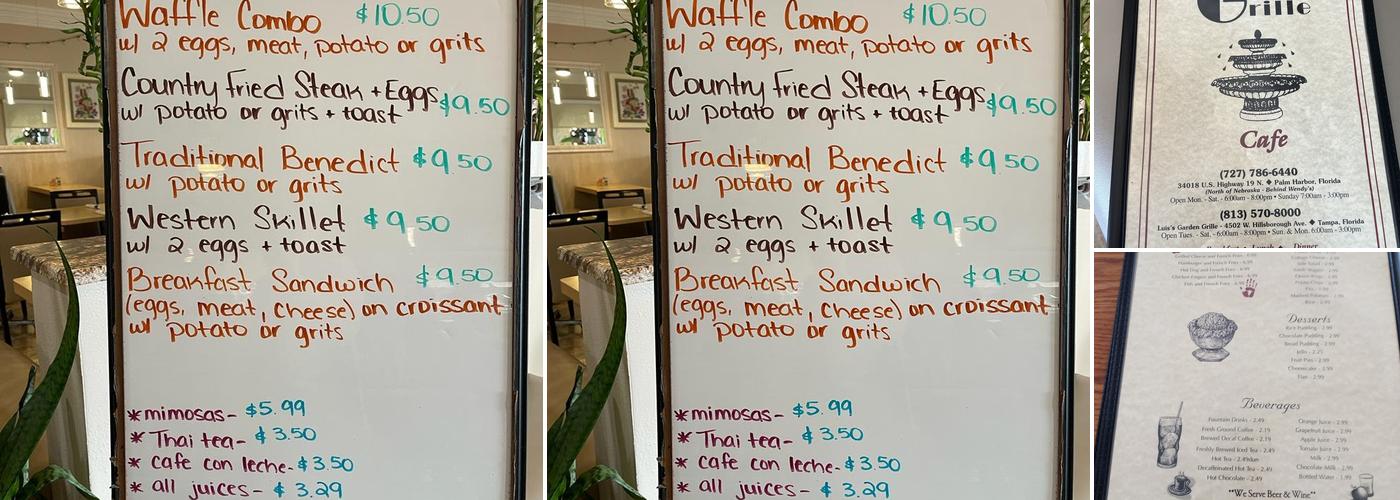 Waffle Combo $10.50
w/ 2 eggs, meat, potato or grits
Country Fried Steak + Eggs $9.50
w/ potato or grits + toast
Traditional Benedict $9.50
w/ potato or grits
Western Skillet $9.50
w/ 2 eggs + toast
Breakfast Sandwich $9.50
(eggs, meat, cheese) on croissant
w/ potato or grits
* mimosas - $5.99
* Thai tea - $3.50
* cafe con leche - $3.50
* all juices - $3.29
Waffle Combo $10.50
w/ 2 eggs, meat, potato or grits
Country Fried Steak + Eggs $9.50
w/ potato or grits + toast
Traditional Benedict $9.50
w/ potato or grits
Western Skillet $9.50
w/ 2 eggs + toast
Breakfast Sandwich $9.50
(eggs, meat, cheese) on croissant
w/ potato or grits
* mimosas - $5.99
* Thai tea - $3.50
* cafe con leche - $3.50
* all juices - $3.29
Grille
Cafe
(727) 786-6440
34018 U.S. Highway 19 N. ◆ Palm Harbor, Florida
(North of Nebraska - Behind Wendy's)
Open Mon. - Sat. - 6:00am - 8:00pm • Sunday 7:00am - 3:00pm
(813) 570-8000
Luis's Garden Grille - 4502 W. Hillsborough Ave. ◆ Tampa, Florida
Open Tues. - Sat. - 6:00am - 8:00pm • Sun. & Mon. 6:00am - 3:00pm
Desserts
Rice Pudding - 2.99
Chocolate Pudding - 2.99
Bread Pudding - 2.99
Jello - 2.25
Fruit Pies - 2.99
Cheesecake - 2.99
Flan - 2.99
Beverages
Fountain Drinks - 2.49
Fresh Ground Coffee - 2.19
Brewed Decaf Coffee - 2.19
Freshly Brewed Iced Tea - 2.49
Hot Tea - 2.49
Decaffeinated Hot Tea - 2.49
Hot Chocolate - 2.49
Orange Juice - 2.99
Grapefruit Juice - 2.99
Apple Juice - 2.99
Tomato Juice - 2.99
Milk - 2.99
Chocolate Milk - 2.99
Bottled Water - 1.99
**We Serve Beer & Wine**